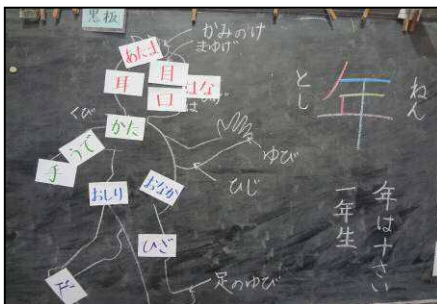 黒板
かみのけ
まゆげ
あたま
耳
目
口
はな
は
くび
かた
うで
手
ゆび
ひじ
おしり
おなか
ひざ
足
足のゆび
年
ねん
とし
年は十さい
一年生